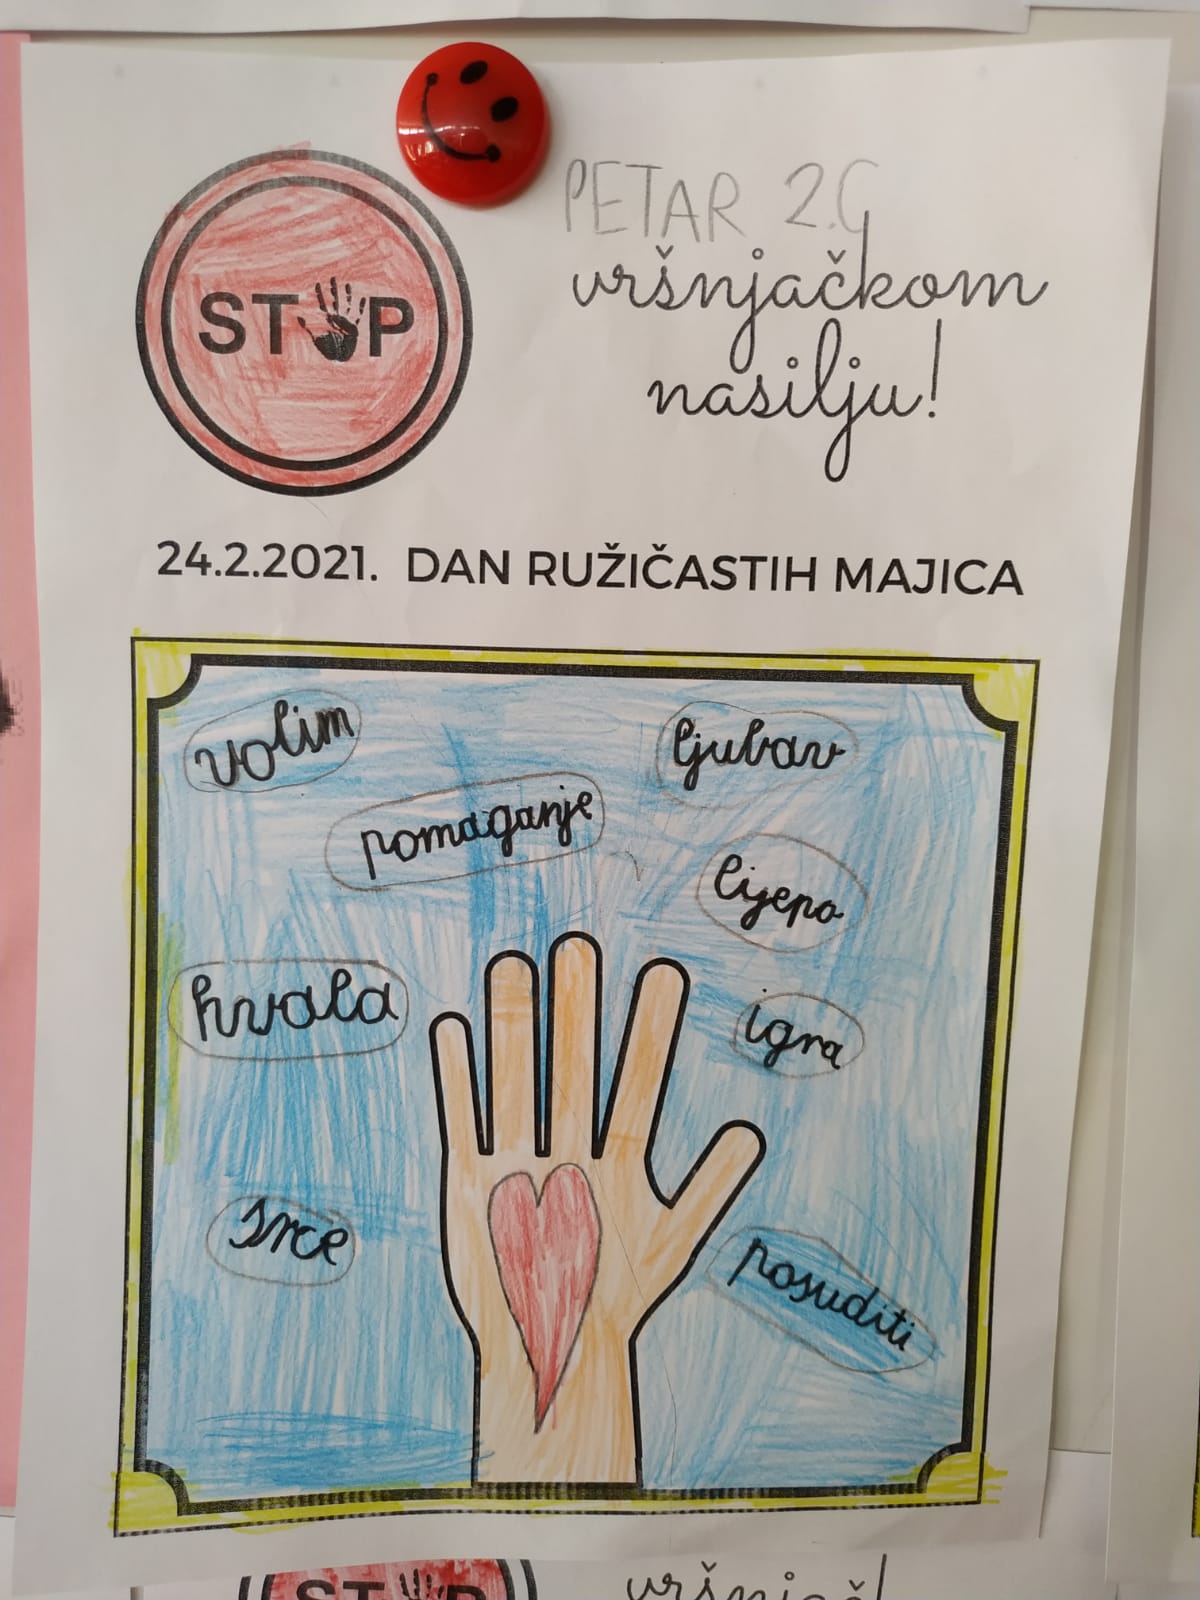 PETAR 2.C
STOP
vršnjačkom
nasilju!
24.2.2021. DAN RUŽIČASTIH MAJICA
volim
ljubav
pomaganje
lijepo
hvala
igra
srce
posuditi
STOP